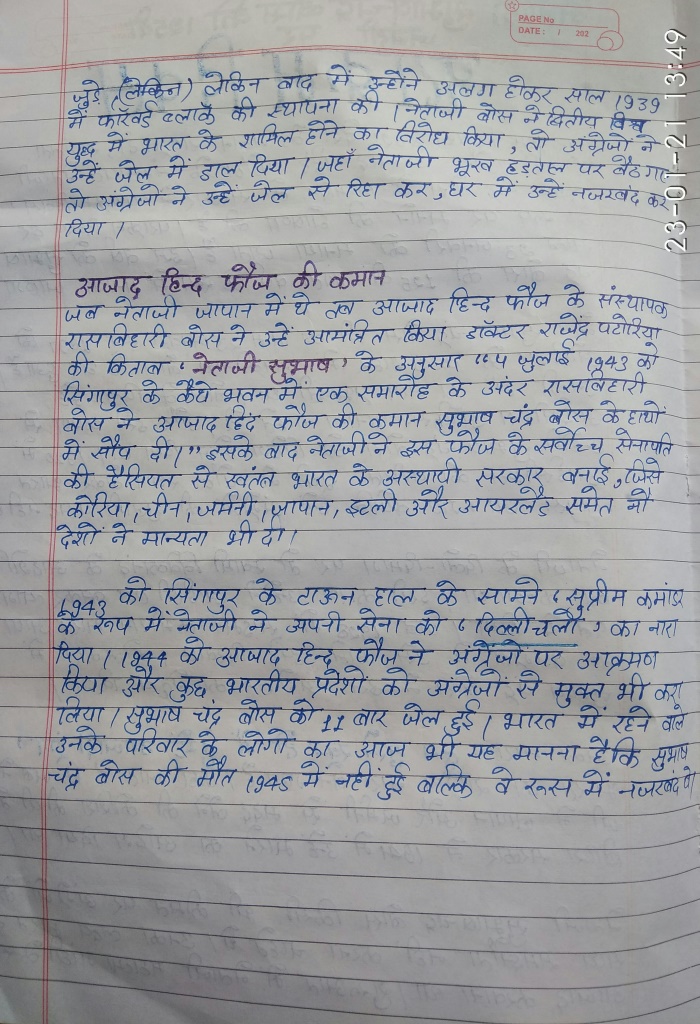 PAGE No
DATE: / / 202
23-01-21 13:49
जुड़े (लेकिन) लेकिन बाद में उन्होंने अलग होकर साल 1939
में फॉरवर्ड ब्लॉक की स्थापना की। नेताजी बोस ने द्वितीय विश्व
युद्ध में भारत के शामिल होने का विरोध किया, तो अंग्रेजों ने
उन्हें जेल में डाल दिया। जहाँ नेताजी भूख हड़ताल पर बैठ गए
तो अंग्रेजों ने उन्हें जेल से रिहा कर, घर में उन्हें नजरबंद कर
दिया।
आजाद हिन्द फौज की कमान
जब नेताजी जापान में थे तब आजाद हिन्द फौज के संस्थापक
रासबिहारी बोस ने उन्हें आमंत्रित किया डॉक्टर राजेंद्र पटोरिया
की किताब 'नेताजी सुभाष' के अनुसार "4 जुलाई 1943 को
सिंगापुर के कैथे भवन में एक समारोह के अंदर रासबिहारी
बोस ने आजाद हिंद फौज की कमान सुभाष चंद्र बोस के हाथों
में सौंप दी।" इसके बाद नेताजी ने इस फौज के सर्वोच्च सेनापति
की हैसियत से स्वतंत्र भारत के अस्थायी सरकार बनाई, जिसे
कोरिया, चीन, जर्मनी, जापान, इटली और आयरलैंड समेत नौ
देशों ने मान्यता भी दी।
1943 को सिंगापुर के टाऊन हाल के सामने 'सुप्रीम कमांडर
के रूप में नेताजी ने अपनी सेना को 'दिल्ली चलो' का नारा
दिया। 1944 को आजाद हिन्द फौज ने अंग्रेजों पर आक्रमण
किया और कुछ भारतीय प्रदेशों को अंग्रेजों से मुक्त भी करा
लिया। सुभाष चंद्र बोस को 11 बार जेल हुई। भारत में रहने वाले
उनके परिवार के लोगों का आज भी यह मानना है कि सुभाष
चंद्र बोस की मौत 1945 में नहीं हुई बल्कि वे रूस में नजरबंद थे